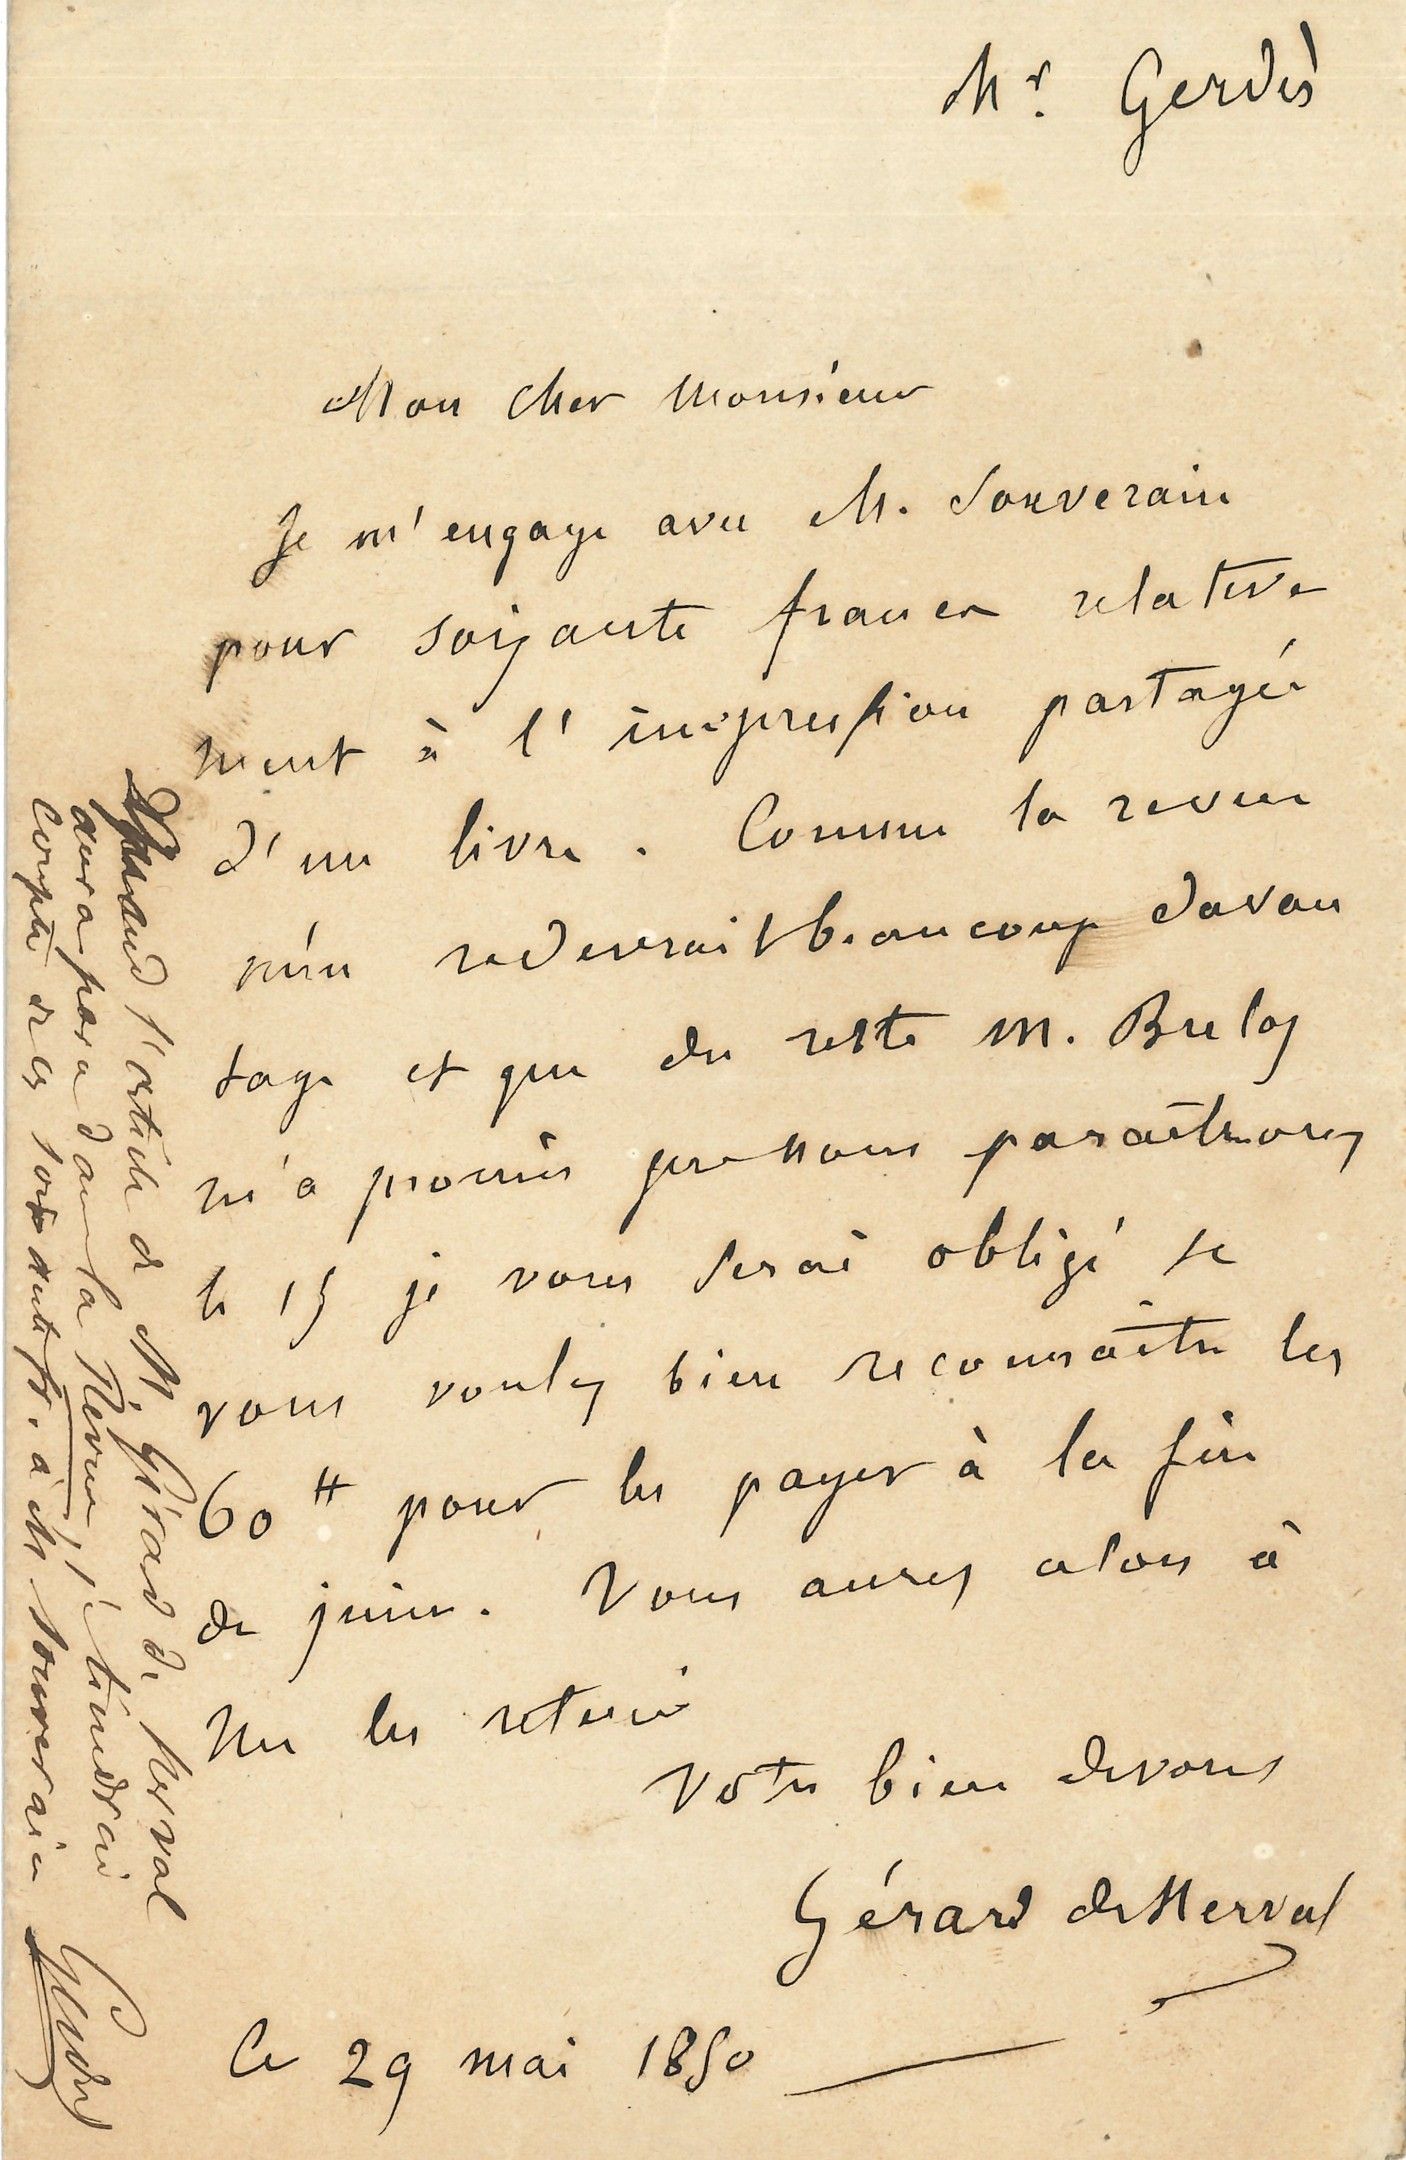 Mr. Gerdès
Mon cher Monsieur
Je m'engage avec M. Souverain
pour soixante francs relative
ment à l'impression partagée
d'un livre. Comme la revue
m'en redevrait beaucoup davan
tage et que du reste M. Buloz
m'a promis que nous paraîtrons
le 15 je vous serai obligé se
vous voulez bien reconnaître les
60 # pour les payer à la fin
de juin. Vous aurez alors à
me les retenir
Votre bien devoué
Gérard de Nerval
Ce 29 mai 1850
Quand l'article de M. Gérard de Nerval
aura paru dans la Revue, je tiendrai
compte de ces soixante fr. à M. Souverain
Gerdès